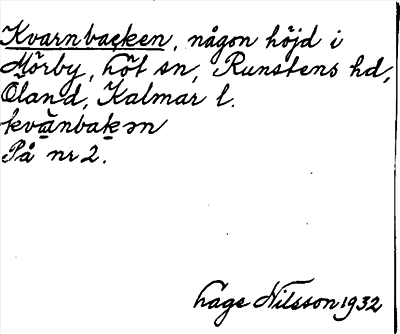 Kvarnbacken, någon höjd i
Mörby, Löt sn, Runstens hd,
Öland, Kalmar l.
kvänbakən
På nr 2.
Lage Nilsson 1932